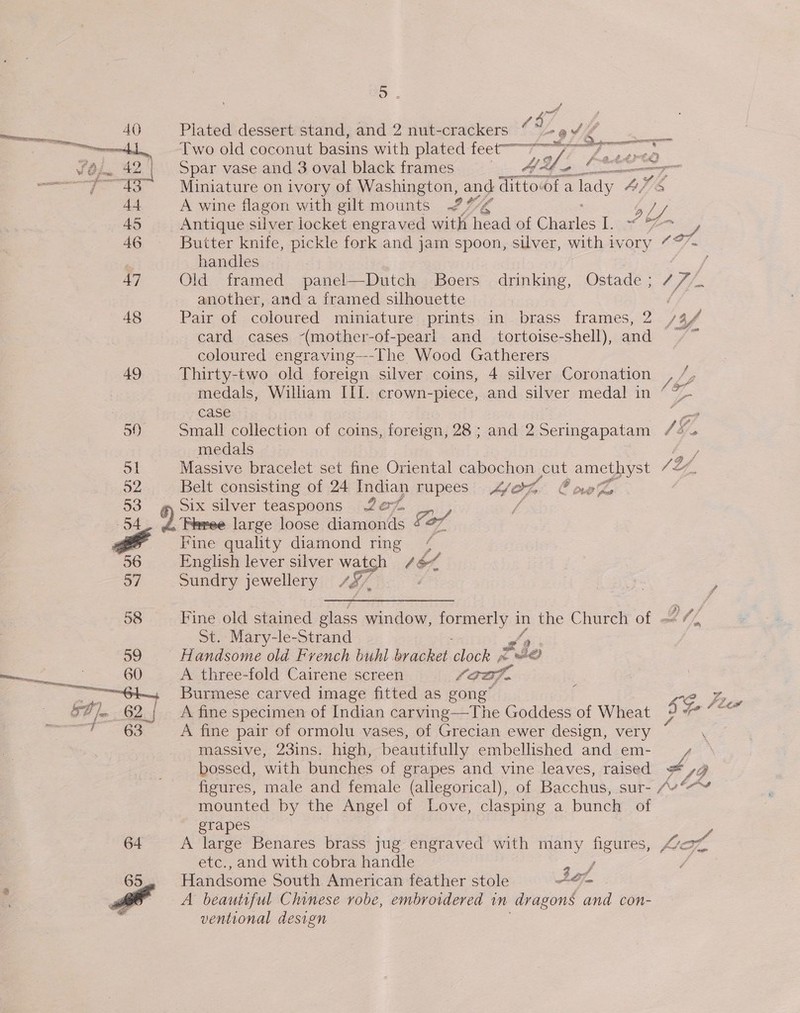 5
40 Plated dessert stand, and 2 nut-crackers
41 Two old coconut basins with plated feet
42 Spar vase and 3 oval black frames
43 Miniature on ivory of Washington, and ditto of a lady
44 A wine flagon with gilt mounts
45 Antique silver locket engraved with head of Charles I.
46 Butter knife, pickle fork and jam spoon, silver, with ivory
handles
47 Old framed panel—Dutch Boers drinking, Ostade;
another, and a framed silhouette
48 Pair of coloured miniature prints in brass frames, 2
card cases (mother-of-pearl and tortoise-shell), and
coloured engraving—The Wood Gatherers
49 Thirty-two old foreign silver coins, 4 silver Coronation
medals, William III. crown-piece, and silver medal in
case
50 Small collection of coins, foreign, 28; and 2 Seringapatam
medals
51 Massive bracelet set fine Oriental cabochon cut amethyst
52 Belt consisting of 24 Indian rupees
53 Six silver teaspoons
54 Three large loose diamonds
Fine quality diamond ring
56 English lever silver watch
57 Sundry jewellery
58 Fine old stained glass window, formerly in the Church of
St. Mary-le-Strand
59 Handsome old French buhl bracket clock
60 A three-fold Cairene screen
61 Burmese carved image fitted as gong
62 A fine specimen of Indian carving—The Goddess of Wheat
63 A fine pair of ormolu vases, of Grecian ewer design, very
massive, 23ins. high, beautifully embellished and em-
bossed, with bunches of grapes and vine leaves, raised
figures, male and female (allegorical), of Bacchus, sur-
mounted by the Angel of Love, clasping a bunch of
grapes
64 A large Benares brass jug engraved with many figures,
etc., and with cobra handle
65 Handsome South American feather stole
A beautiful Chinese robe, embroidered in dragons and con-
ventional design